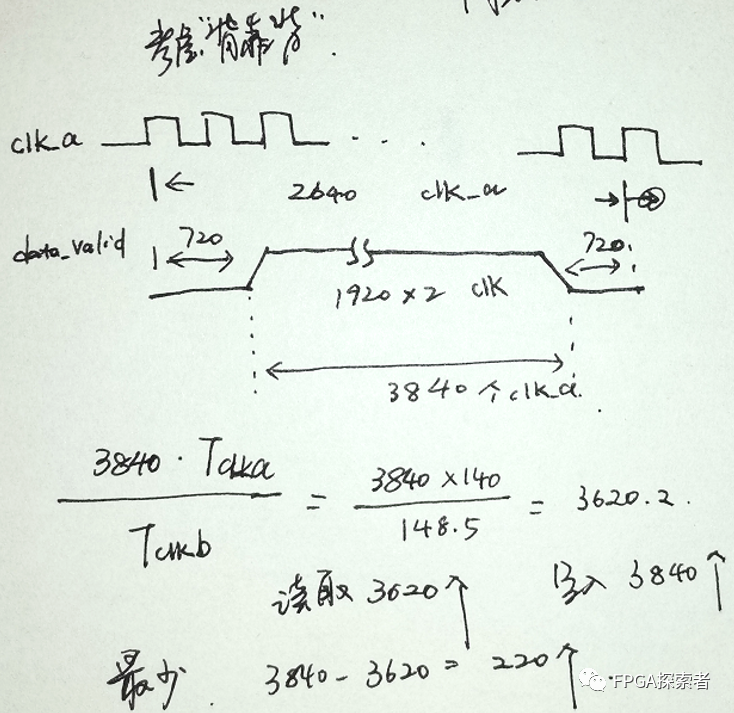 考虑"背靠背".
clk_a
2640 clk_a
data_valid 720 720
1920 × 2 clk
3840 个 clk_a.
3840 · Tclka / Tclkb = 3840 × 140 / 148.5 = 3620.2.
读取 3620个 写入 3840个
最少. 3840 - 3620 = 220个.
FPGA探索者